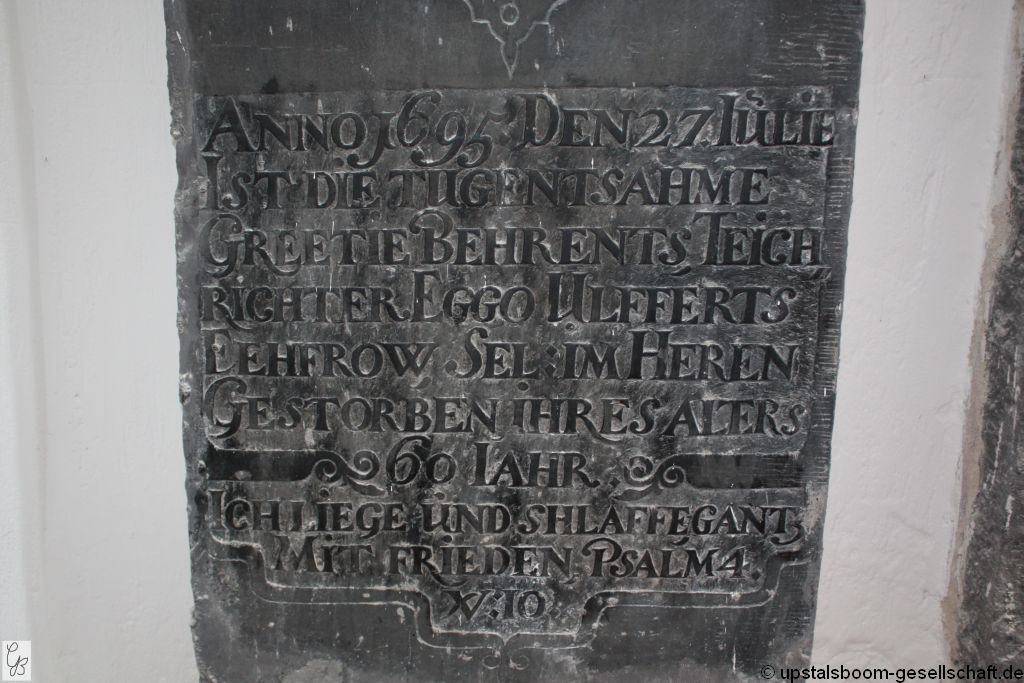 ANNO 1695 DEN 27. IULIE
IST DIE TUGENTSAHME
GREETIE BEHRENTS TEICH
RICHTER EGGO ULFFERTS
EEHFROW SEL: IM HEREN
GESTORBEN IHRES ALTERS
60 IAHR.
ICH LIEGE UND SHLAFFE GANTZ
MIT FRIEDEN PSALM 4.
XV:10
GB
© upstalsboom-gesellschaft.de